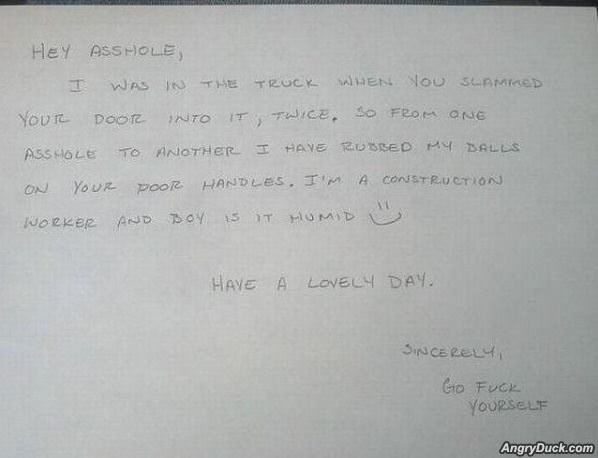 HEY ASSHOLE,
I WAS IN THE TRUCK WHEN YOU SLAMMED
YOUR DOOR INTO IT, TWICE. SO FROM ONE
ASSHOLE TO ANOTHER I HAVE RUBBED MY BALLS
ON YOUR DOOR HANDLES. I'M A CONSTRUCTION
WORKER AND BOY IS IT HUMID
HAVE A LOVELY DAY.
SINCERELY,
GO FUCK
YOURSELF
AngryDuck.com